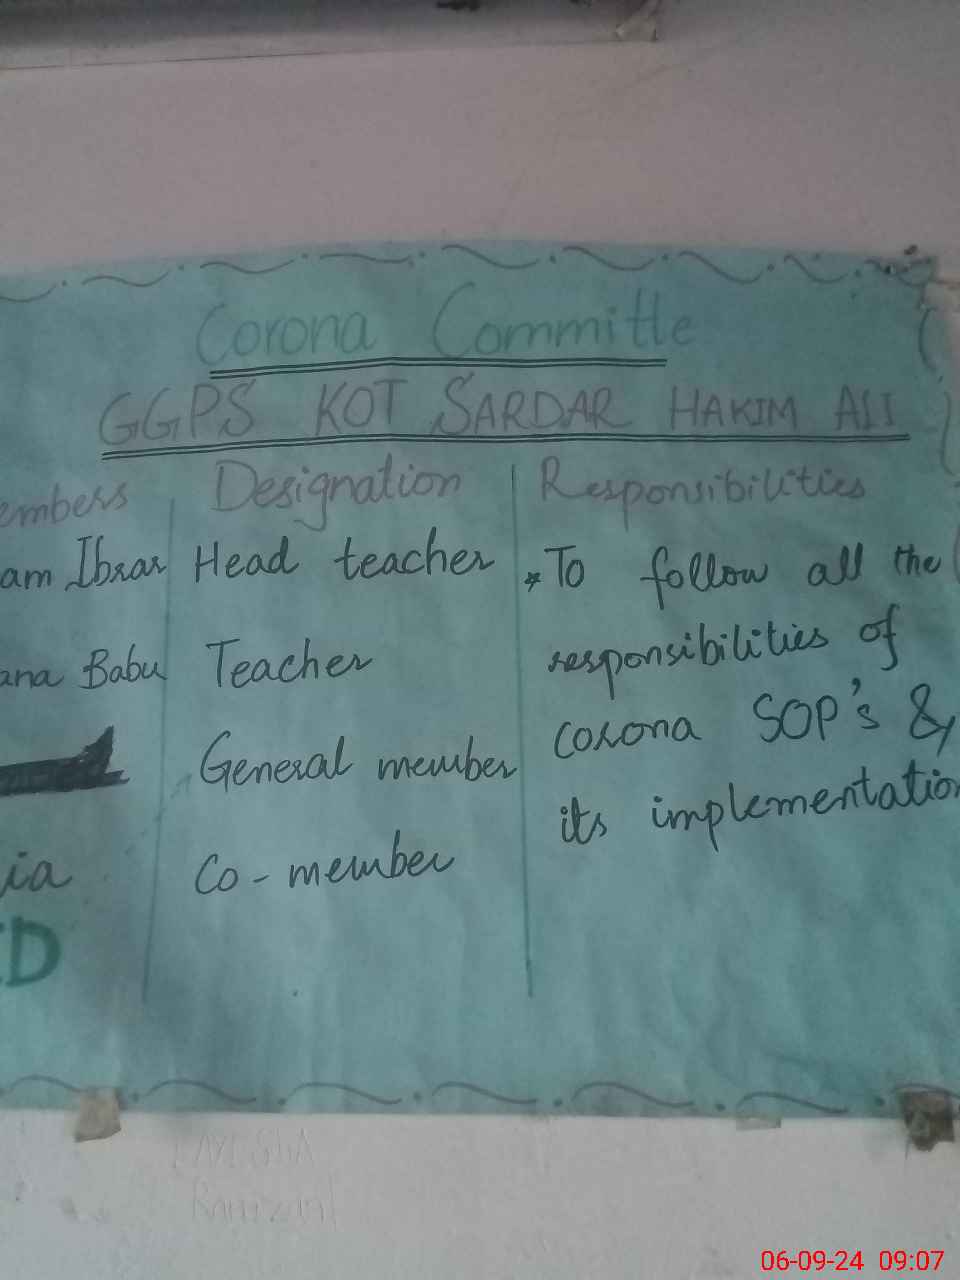 Corona Committe
GGPS KOT SARDAR HAKIM ALI
embers Designation Responsibilities
am Ibrar Head teacher *To follow all the
ana Babu Teacher responsibilities of
General member corona SOP's &
its implementation
ia Co-member
ED
06-09-24 09:07